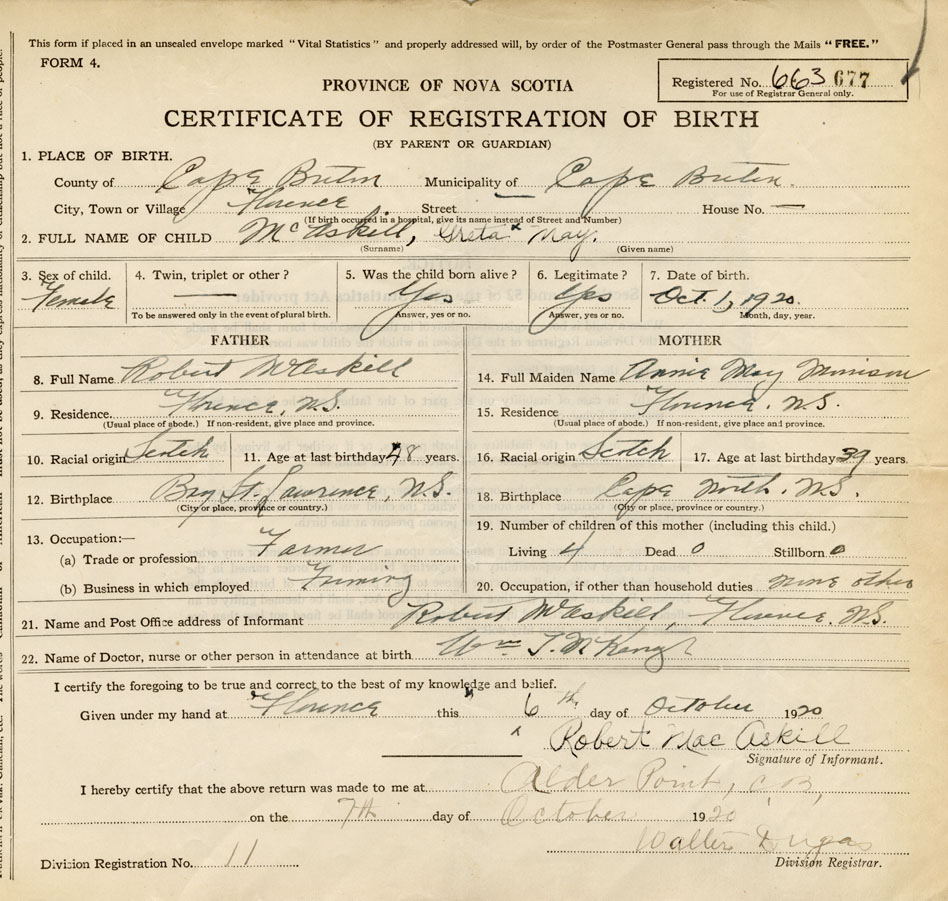 This form if placed in an unsealed envelope marked "Vital Statistics" and properly addressed will, by order of the Postmaster General pass through the Mails "FREE."
FORM 4.
Registered No. 663 677
For use of Registrar General only.
PROVINCE OF NOVA SCOTIA
CERTIFICATE OF REGISTRATION OF BIRTH
(BY PARENT OR GUARDIAN)
1. PLACE OF BIRTH.
County of Cape Breton Municipality of Cape Breton.
City, Town or Village Florence Street — House No. —
(If birth occurred in a hospital, give its name instead of Street and Number)
2. FULL NAME OF CHILD McAskill, Greta May.
(Surname) (Given name)
3. Sex of child. 4. Twin, triplet or other? 5. Was the child born alive? 6. Legitimate? 7. Date of birth.
Female — Yes Yes Oct. 1, 1920.
To be answered only in the event of plural birth. Answer, yes or no. Answer, yes or no. Month, day, year.
FATHER
8. Full Name Robert McAskill
9. Residence. Florence, N.S.
(Usual place of abode.) If non-resident, give place and province.
10. Racial origin Scotch 11. Age at last birthday 48 years.
12. Birthplace Bay St. Lawrence, N.S.
(City or place, province or country.)
13. Occupation:—
(a) Trade or profession Farmer
(b) Business in which employed Farming
MOTHER
14. Full Maiden Name Annie May Morrison
15. Residence Florence. N.S.
(Usual place of abode.) If non-resident, give place and province.
16. Racial origin Scotch 17. Age at last birthday 39 years.
18. Birthplace Cape North. N.S.
(City or place, province or country.)
19. Number of children of this mother (including this child.)
Living 4 Dead 0 Stillborn 0
20. Occupation, if other than household duties none other
21. Name and Post Office address of Informant Robert McAskill, Florence. N.S.
22. Name of Doctor, nurse or other person in attendance at birth Wm
I certify the foregoing to be true and correct to the best of my knowledge and belief.
Given under my hand at Florence this 6th day of October 1920
Robert MacAskill
Signature of Informant.
I hereby certify that the above return was made to me at Alder Point, C.B,
on the 7th day of October 1920
Walter Dugas
Division Registrar.
Division Registration No. 11